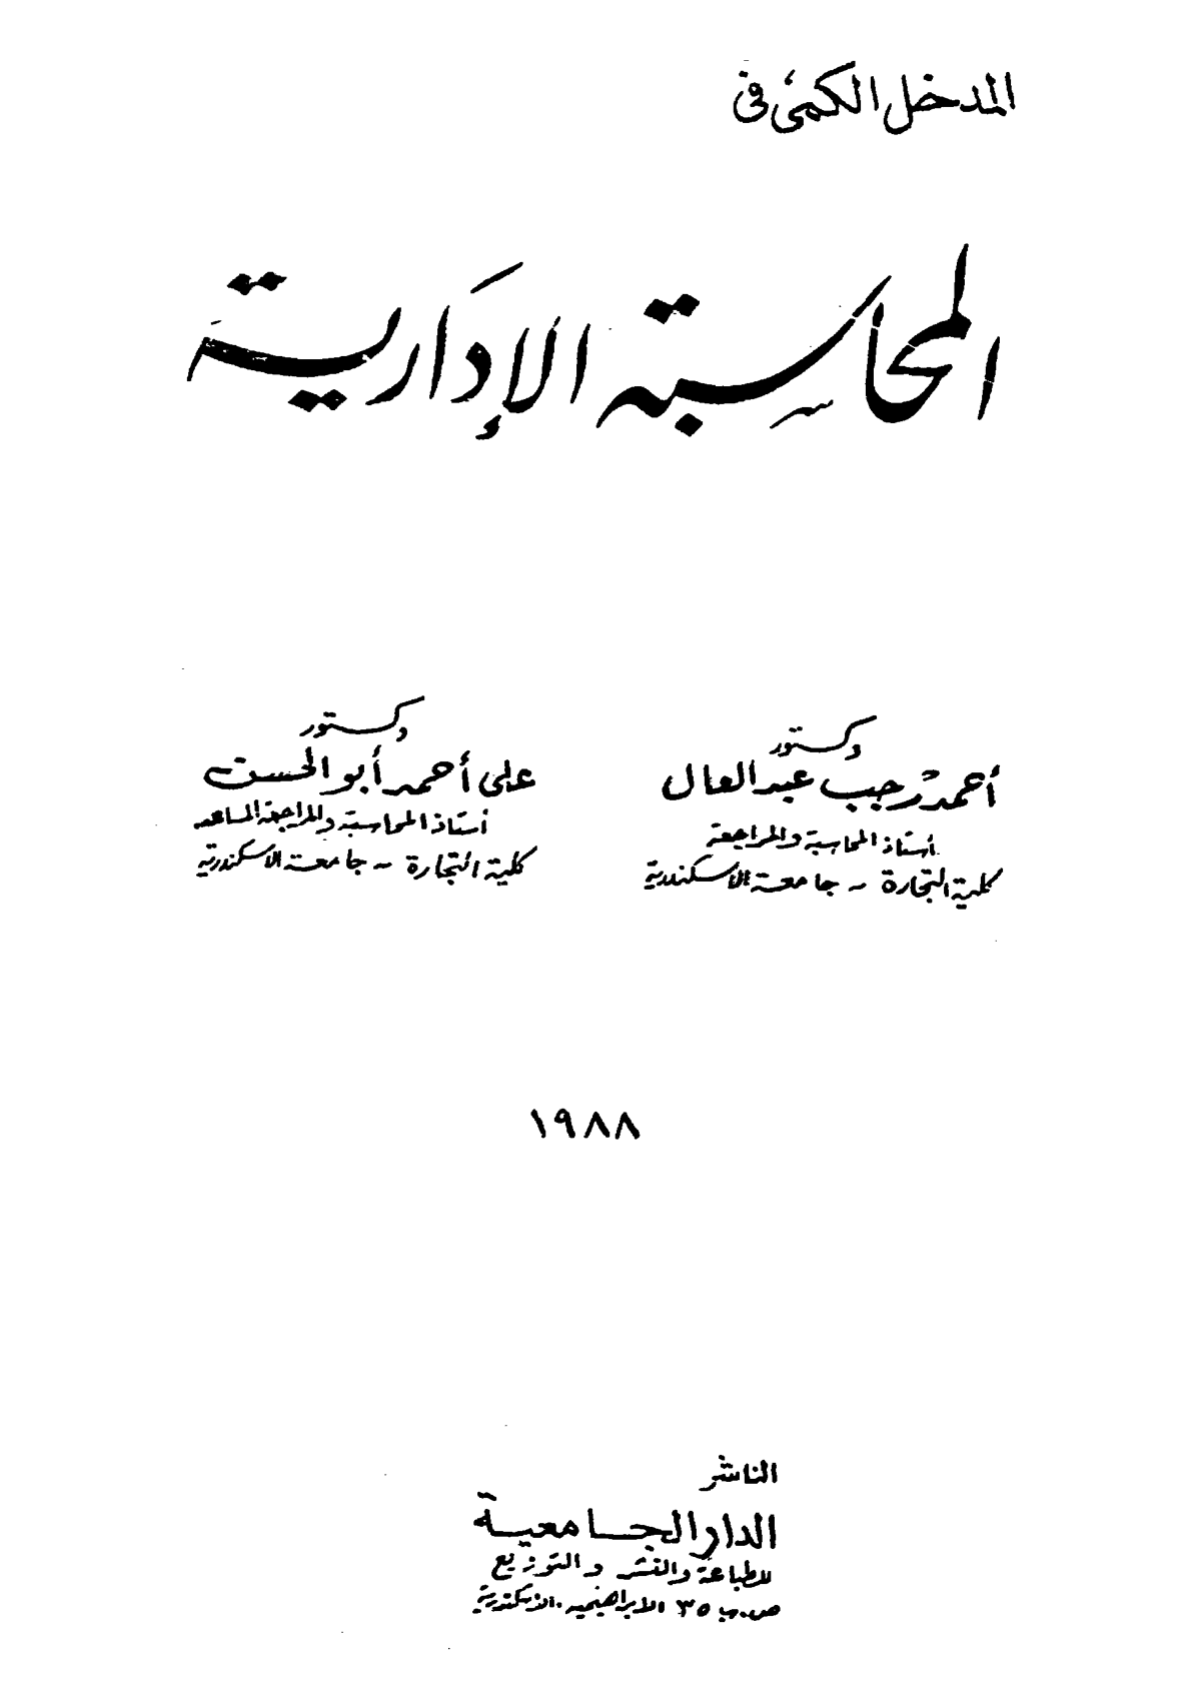 المدخل الكمى فى
المحاسبة الإدارية
دكتور
أحمد رجب عبد العال
أستاذ المحاسبة والمراجعة
كلية التجارة - جامعة الاسكندرية
دكتور
على أحمد أبو الحسن
أستاذ المحاسبة والمراجعة المساعد
كلية التجارة - جامعة الاسكندرية
١٩٨٨
الناشر
الدار الجامعية
للطباعة والنشر والتوزيع
ص.ب ٣٥ الابراهيمية . الاسكندرية